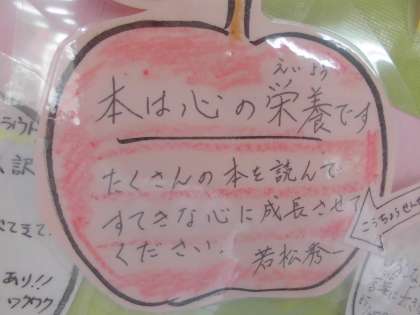 えいよう
本は心の栄養です
たくさんの本を読んで
すてきな心に成長させて
ください.
若松秀一
こうちょうせんせ
訳
あり!!
ワクワク